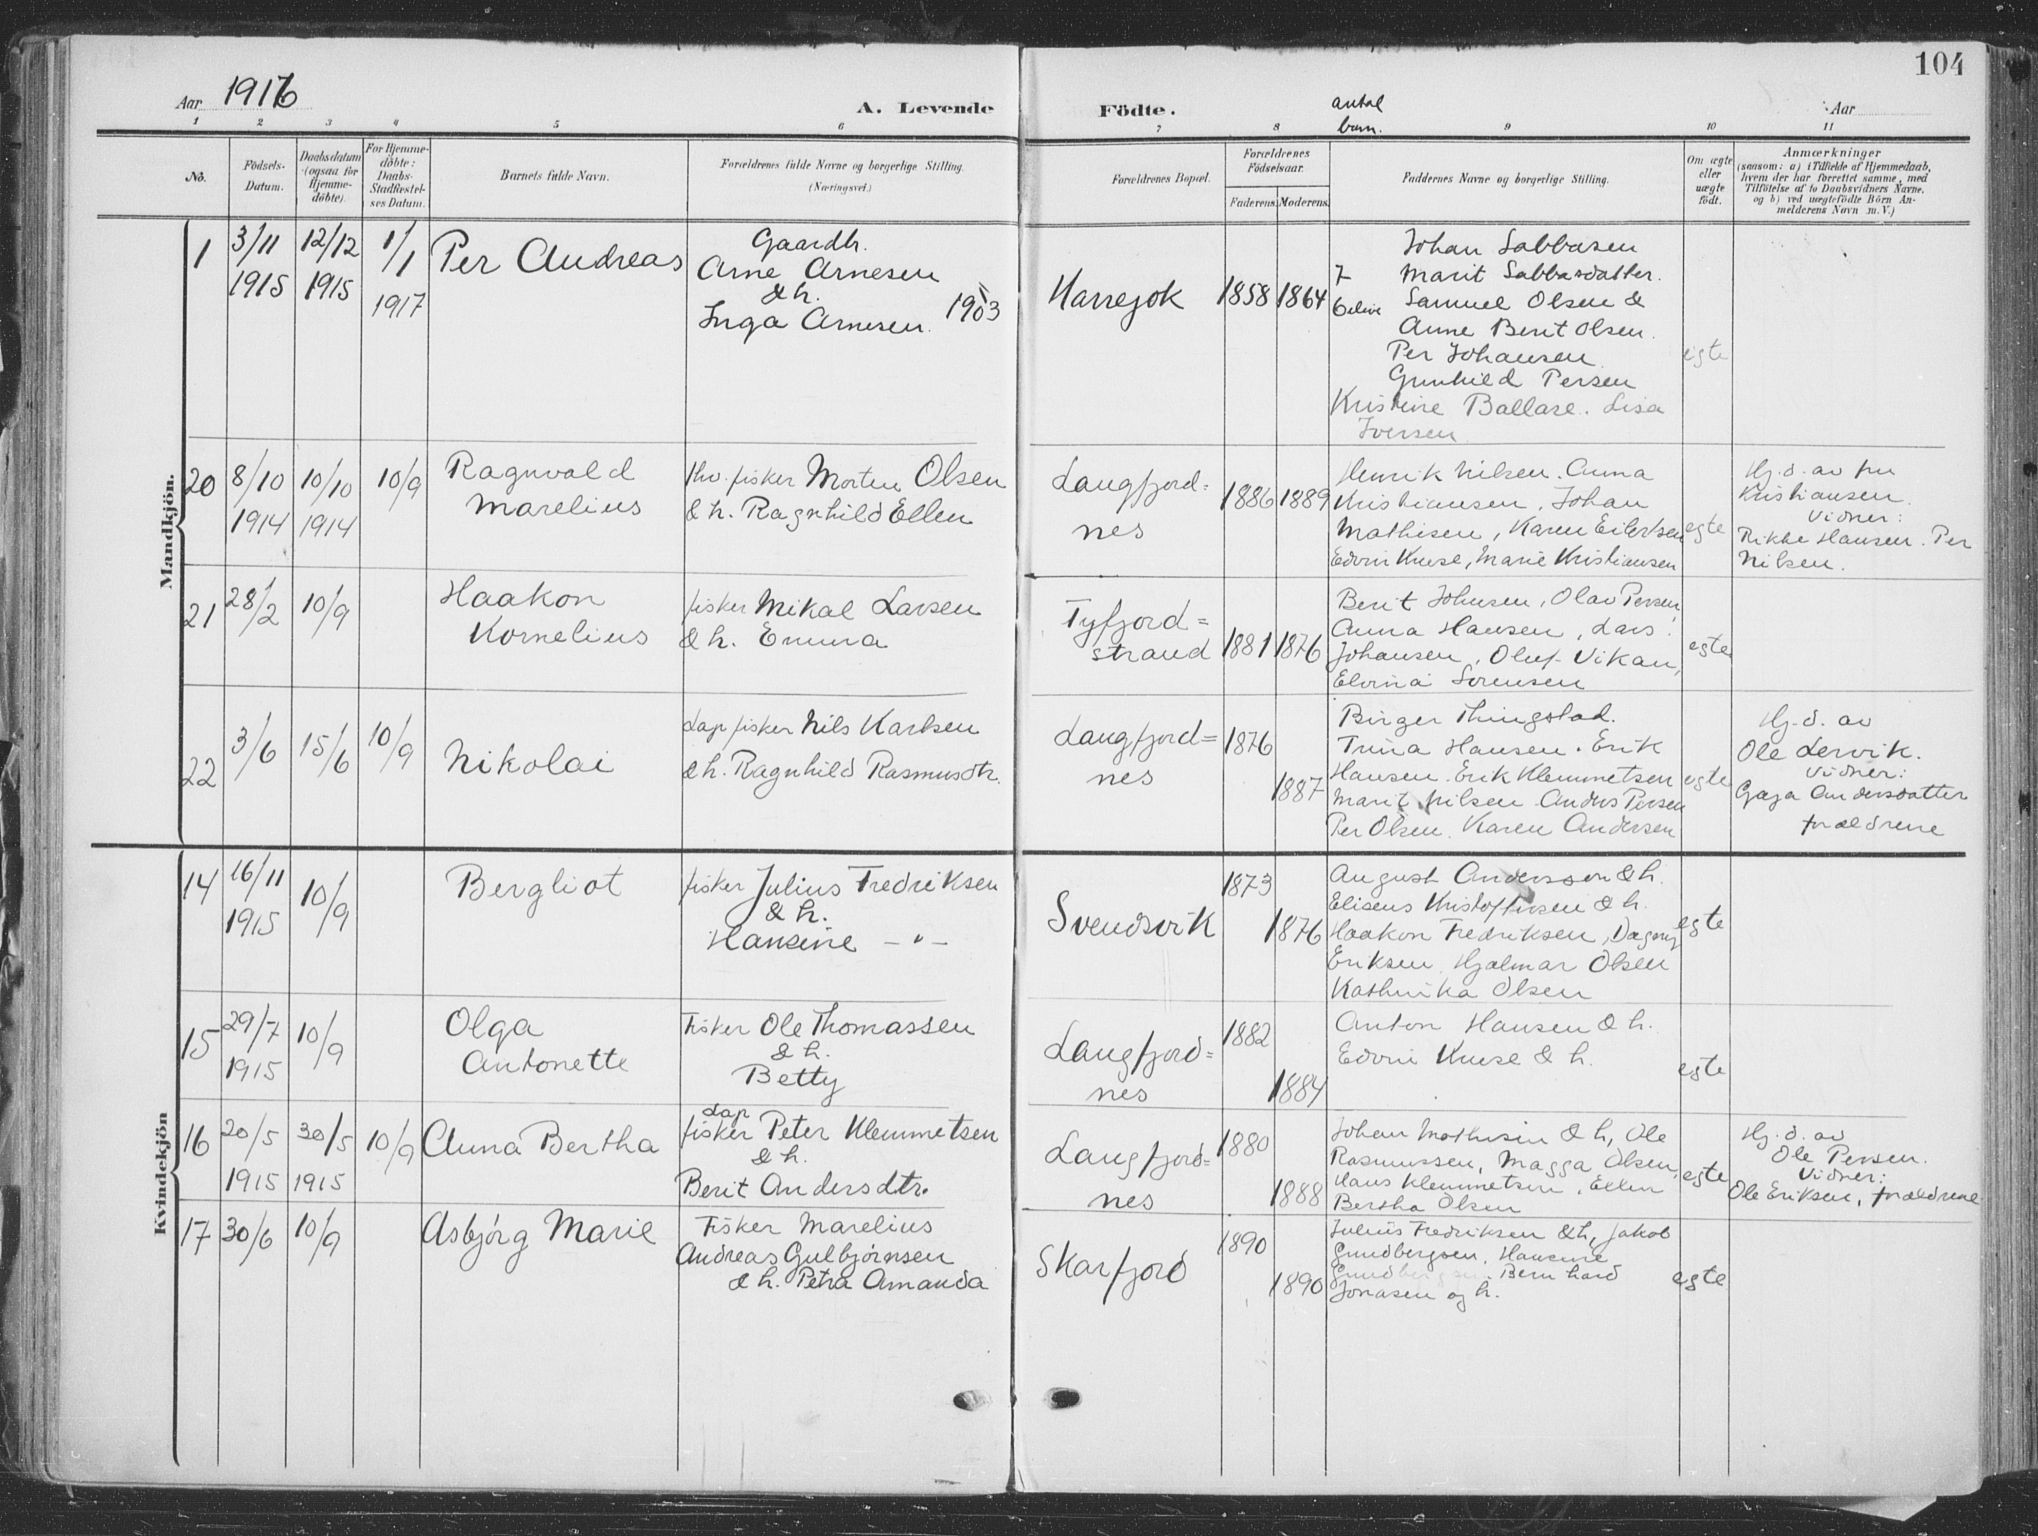 104
Aar 1916
A. Levende
Födte.
antal
barn.
Aar
1 2 3 4 5 6 7 8 9 10 11
No.
Födsels-
Datum.
Daabsdatum
(ogsaa for
Hjemme-
döbte).
For Hjemme-
döbte:
Daabs-
Stadfæstel-
ses Datum.
Barnets fulde Navn.
Forældrenes fulde Navne og borgerlige Stilling.
(Næringsvei.)
Forældrenes Bopæl.
Forældrenes
Födselsaar.
Faderens.
Moderens.
Faddernes Navne og borgerlige Stilling.
Om ægte
eller
uægte
födt.
Anmærkninger
(saasom: a) i Tilfælde af Hjemmedaab,
hvem der har forrettet samme, med
Tilföielse af to Daabsvidners Navne.
og b) ved uægtefödte Börn An-
melderens Navn m. V.)
Mandkjön.
1
3/11
1915
12/12
1915
1/1
1917
Per Andreas
Gaardbr.
Arne Arnesen
& h.
Inga Arnesen. 1903
Harrejok
1858
1864
7
6 elive
Johan Sabbasen
Marit Sabbasdatter.
Samuel Olsen &
Anne Berit Olsen.
Per Johansen
Gunhild Persen
Kristine Ballare. Lisa
Iversen
egte
20
8/10
1914
10/10
1914
10/9
Ragnvald
Marelius
fisker Morten Olsen
& h. Ragnhild Ellen
Langfjord=
nes
1886
1889
Henrik Nilsen. Anna
Kristiansen, Johan
Mathisen, Karen Eilertsen
Edvin Kruse, Marie Kristiansen
egte
Hj. d. av fru
Kristiansen.
Vidner:
Rikke Hansen. Per
Nilsen.
21
28/2
10/9
Haakon
Kornelius
fisker Mikal Larsen
& h. Emma
Tyfjord=
strand
1881
1876
Berit Johnsen, Olav Persen
Anna Hansen, Lars
Johansen, Oluf Vikan,
Elvina Sørensen
egte
22
3/6
15/6
10/9
Nikolai
Lap fisker Nils Karlsen
& h. Ragnhild Rasmusdtr.
Langfjord=
nes
1876
1887
Birger Thingstad.
Trina Hansen. Erik
Hansen. Erik Klemmetsen
Marit Nilsen. Anders Persen
Per Olsen. Karen Andersen
egte
Hj. d. av
Ole Lervik.
Vidner:
Gaga Andersdatter
forældrene
Kvindekjön
14
16/11
1915
10/9
Bergliot
fisker Julius Fredriksen
& h.
Hansine — " —
Svendsvik
1873
1876
August Anderssen & h.
Eliseus Kristoffersen & h.
Haakon Fredriksen, Dagny
Eriksen, Hjalmar Olsen
Kathinka Olsen
egte
15
29/7
1915
10/9
Olga
Antonette
Fisker Ole Thomassen
& h.
Betty
Langfjord=
nes
1882
1884
Anton Hansen & h.
Edvin Kruse & h.
egte
16
20/5
1915
30/5
1915
10/9
Anna Bertha
Lap
fisker Peter Klemmetsen
& h.
Berit Andersdtr.
Langfjord=
nes
1880
1888
Johan Mathisen & h, Ole
Rasmussen, Magga Olsen,
Hans Klemmetsen, Ellen
Bertha Olsen
egte
Hj. d. av
Ole Persen.
Vidner:
Ole Eriksen, forældrene
17
30/6
10/9
Asbjørg Marie
Fisker Marelius
Andreas Gulbjørnsen
& h. Petra Amanda
Skarfjord
1890
1890
Julius Fredriksen & h, Jakob
Gundbergsen, Hansine
Gundbergsen. Bernhard
Jonasen og h.
egte